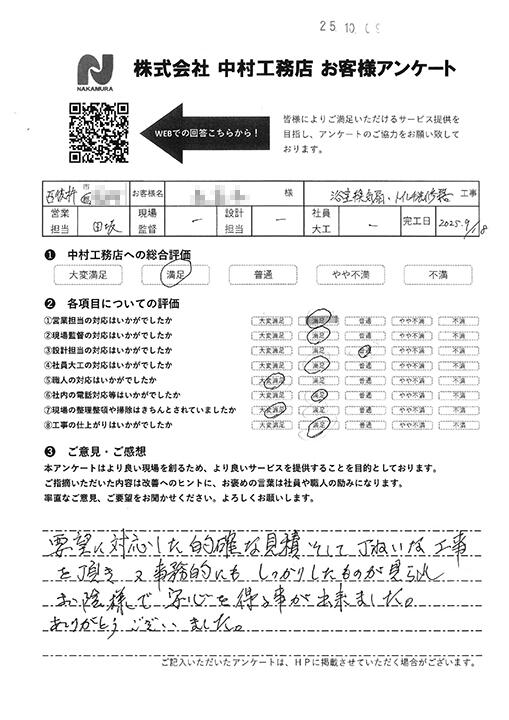 25.10.09
NAKAMURA
株式会社 中村工務店 お客様アンケート
WEBでの回答こちらから！
皆様によりご満足いただけるサービス提供を
目指し、アンケートのご協力をお願い致して
おります。
市
町
お客様名
様
浴室換気扇・トイレ他修繕 工事
営業
担当
田坂
現場
監督
ー
設計
担当
ー
社員
大工
ー
完工日
2025.9/18
❶ 中村工務店への総合評価
大変満足 満足 普通 やや不満 不満
❷ 各項目についての評価
①営業担当の対応はいかがでしたか 大変満足 満足 普通 やや不満 不満
②現場監督の対応はいかがでしたか 大変満足 満足 普通 やや不満 不満
③設計担当の対応はいかがでしたか 大変満足 満足 普通 やや不満 不満
④社員大工の対応はいかがでしたか 大変満足 満足 普通 やや不満 不満
⑤職人の対応はいかがでしたか 大変満足 満足 普通 やや不満 不満
⑥社内の電話対応等はいかがでしたか 大変満足 満足 普通 やや不満 不満
⑦現場の整理整頓や掃除はきちんとされていましたか 大変満足 満足 普通 やや不満 不満
⑧工事の仕上がりはいかがでしたか 大変満足 満足 普通 やや不満 不満
❸ ご意見・ご感想
本アンケートはより良い現場を創るため、より良いサービスを提供することを目的としております。
ご指摘いただいた内容は改善へのヒントに、お褒めの言葉は社員や職人の励みになります。
率直なご意見、ご要望をお聞かせください。よろしくお願いします。
要望に対応した的確な見積そして丁ねいな工事
を頂き又事務的にもしっかりしたものが見られ
お陰様で安心を得る事が出来ました。
ありがとうございました。
ご記入いただいたアンケートは、HPに掲載させていただく場合がございます。